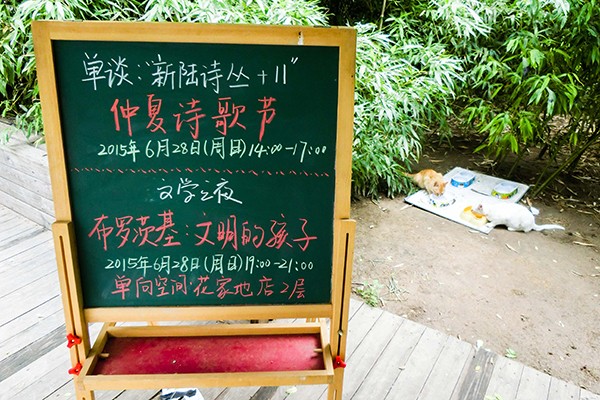 单谈:“新陆诗丛+11”
仲夏诗歌节
2015年6月28日(周日)14:00-17:00
文学之夜
布罗茨基:文明的孩子
2015年6月28日(周日)19:00-21:00
单向空间·花家地店2层